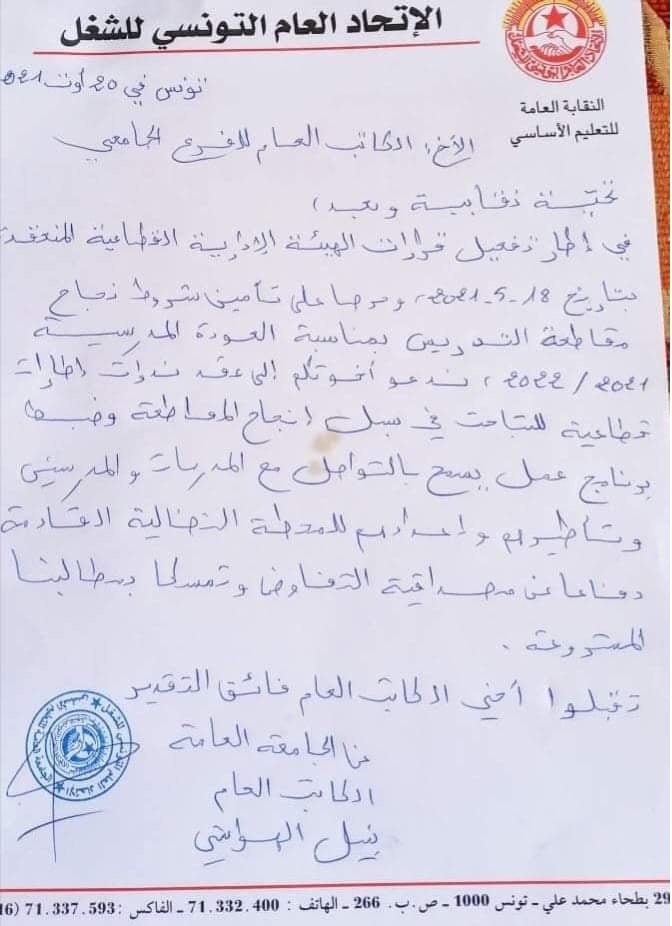 الإتحاد العام التونسي للشغل
النقابة العامة
للتعليم الأساسي
تونس في 20 أوت 2021
الأخ: الكاتب العام للفرع الجامعي
تحيّة نقابية وبعد،
في إطار تفعيل قرارات الهيئة الإدارية القطاعية المنعقدة
بتاريخ 18-5-2021، وحرصا على تأمين شروط نجاح
مقاطعة التدريس بمناسبة العودة المدرسية
2021/2022، ندعو أخوتكم إلى عقد ندوات إطارات
قطاعية للتباحث في سبل إنجاح المقاطعة وضبط
برنامج عمل يسمح بالتواصل مع المدرسات والمدرسين
وتأطيرهم وإعدادهم للمحطة النضالية القادمة
دفاعا عن مصداقية التفاوض وتمسكا بمطالبنا
المشروعة.
تقبلوا أخي الكاتب العام فائق التقدير
عن الجامعة العامة
الكاتب العام
نبيل الهواشي
29 بطحاء محمد علي - تونس 1000 - ص.ب. 266 - الهاتف : 71.332.400 - الفاكس : 71.337.593 (16